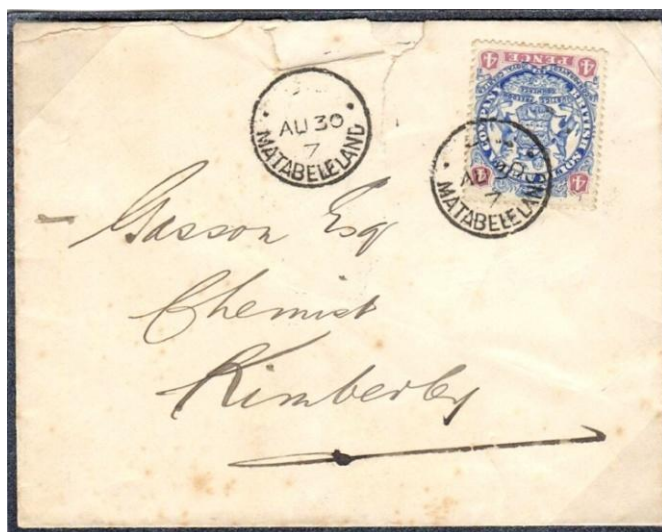 AU 30
7
MATABELELAND
4 PENCE 4
4 4
AU 30
7
MATABELELAND
Gasson Esq
Chemist
Kimberley